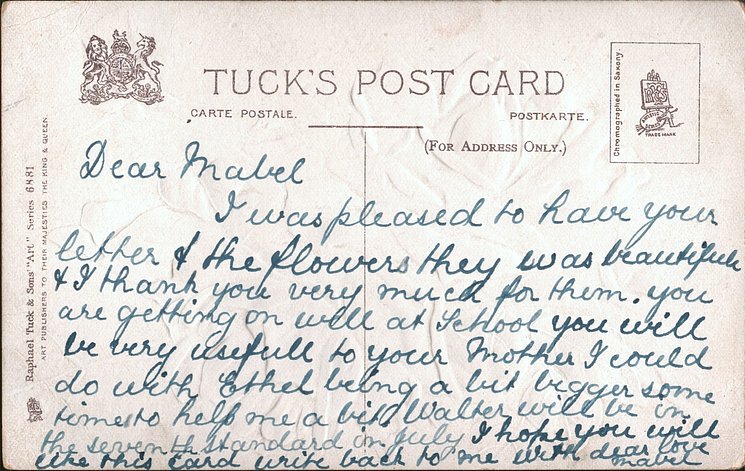 TUCK'S POST CARD
CARTE POSTALE.
POSTKARTE.
(FOR ADDRESS ONLY.)
Chromographed in Saxony.
TRADE MARK
Raphael Tuck & Sons' "Art" Series 6881
ART PUBLISHERS TO THEIR MAJESTIES THE KING & QUEEN
Dear Mabel
I was pleased to have your
letter & the flowers they was beautifull
& I thank you very much for them. you
are getting on well at School you will
be very usefull to your Mother I could
do with Ethel being a bit bigger some
time to help me a bit. Walter will be in
the seventh standard in July I hope you will
like this card write back to me with dear love